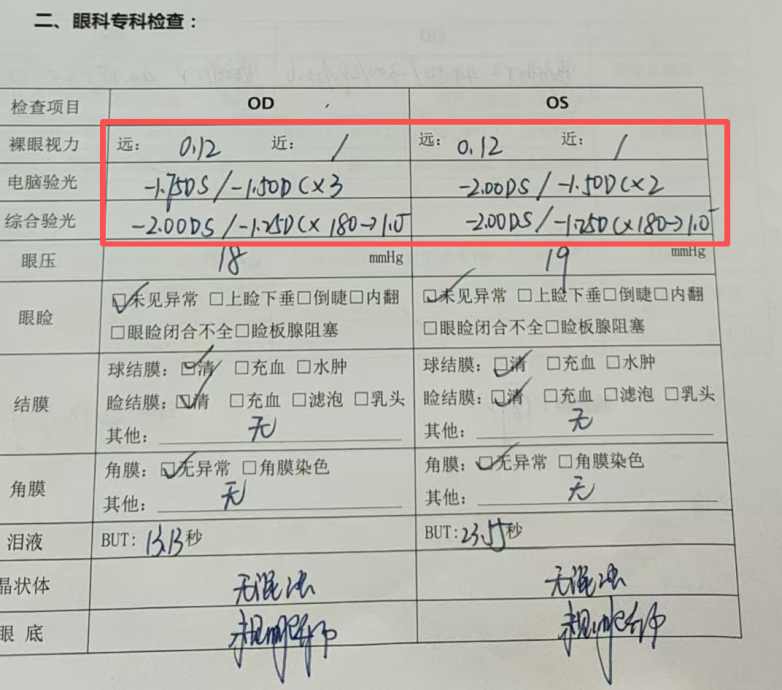 二、眼科专科检查：
检查项目 OD OS
裸眼视力 远： 0.12 近： / 远： 0.12 近： /
电脑验光 -1.75DS/-1.50DC×3 -2.00DS/-1.50DC×2
综合验光 -2.00DS/-1.25DC×180→1.0 -2.00DS/-1.25DC×180→1.0
眼压 18 mmHg 19 mmHg
眼睑 ☑未见异常 □上睑下垂□倒睫□内翻 ☑未见异常 □上睑下垂□倒睫□内翻
□眼睑闭合不全□睑板腺阻塞 □眼睑闭合不全□睑板腺阻塞
结膜 球结膜：☑清 □充血 □水肿 球结膜：☑清 □充血 □水肿
睑结膜：☑清 □充血 □滤泡 □乳头 睑结膜：☑清 □充血 □滤泡 □乳头
其他： 无 其他： 无
角膜 角膜：☑无异常 □角膜染色 角膜：☑无异常 □角膜染色
其他： 无 其他： 无
泪液 BUT: 13.13秒 BUT: 23.55秒
晶状体 无混浊 无混浊
眼 底